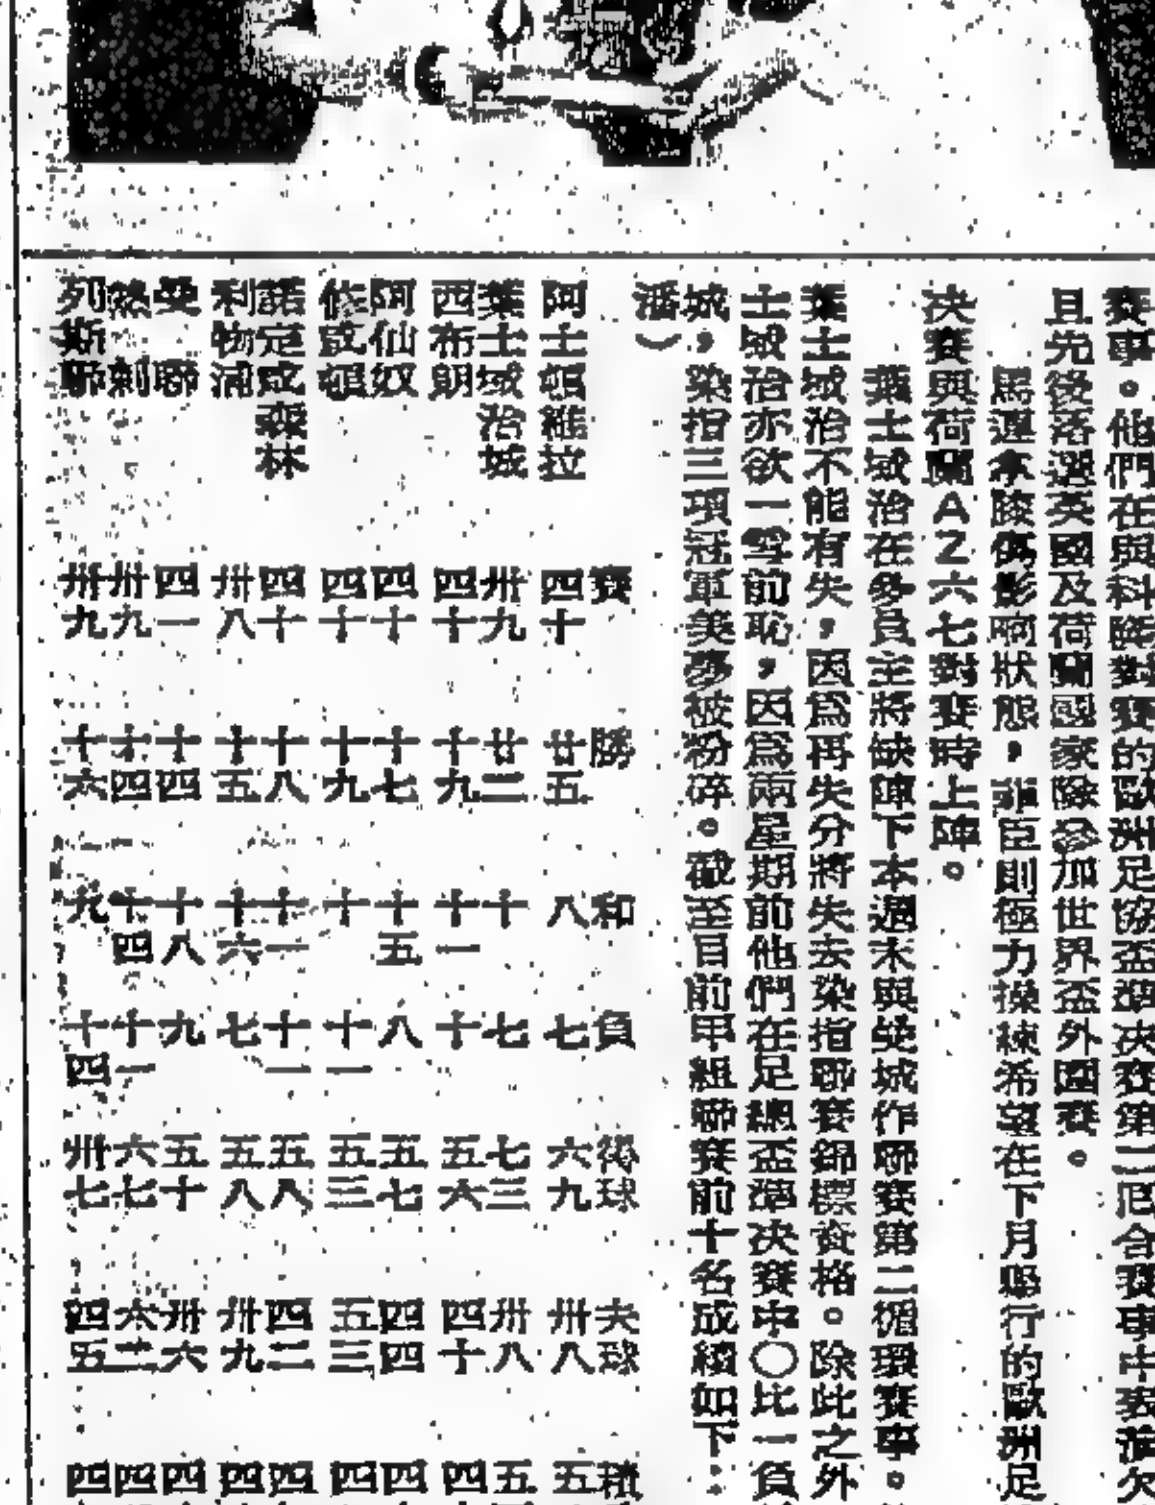 賽事。他們在與科隆對賽的歐洲足協盃準決賽第二回合賽事中表
且先後落選英國及荷蘭國家隊參加世界盃外圍賽。
馬連拿陵傷影响狀態,菲臣則極力操練希望在下月舉行的歐洲足
決賽與荷蘭AZ六七對賽時上陣。
葉士域治在多員主將缺陣下本週末與曼城作聯賽第二循環賽事。
葉士域治不能有失,因爲再失分將失去染指聯賽錦標資格。除此之外
士域治亦欲一雪前恥,因爲兩星期前他們在足總盃準決賽中〇比一負
城,染指三項冠軍美夢被粉碎。截至目前甲組聯賽前十名成績如下:
潘)
賽 勝 和 負 得球 失球 積
阿士頓維拉 四十 廿五 八 七 六九 卅八 五
葉士域治城 卅九 廿二 十 七 七三 卅八 五
西布朗 四十 十九 十一 十 五六 四十 四
阿仙奴 四十 十七 十五 八 五七 四四 四
修咸頓 四十 十九 十 十一 五三 五三 四
諾定咸森林 四十 十八 十一 十一 五八 四二 四
利物浦 卅八 十五 十六 七 五八 卅九 四
曼聯 四一 十四 十八 九 五十 卅六 四
熱刺 卅九 十四 十四 十一 六七 六二 四
列斯聯 卅九 十六 九 十四 卅七 四五 四